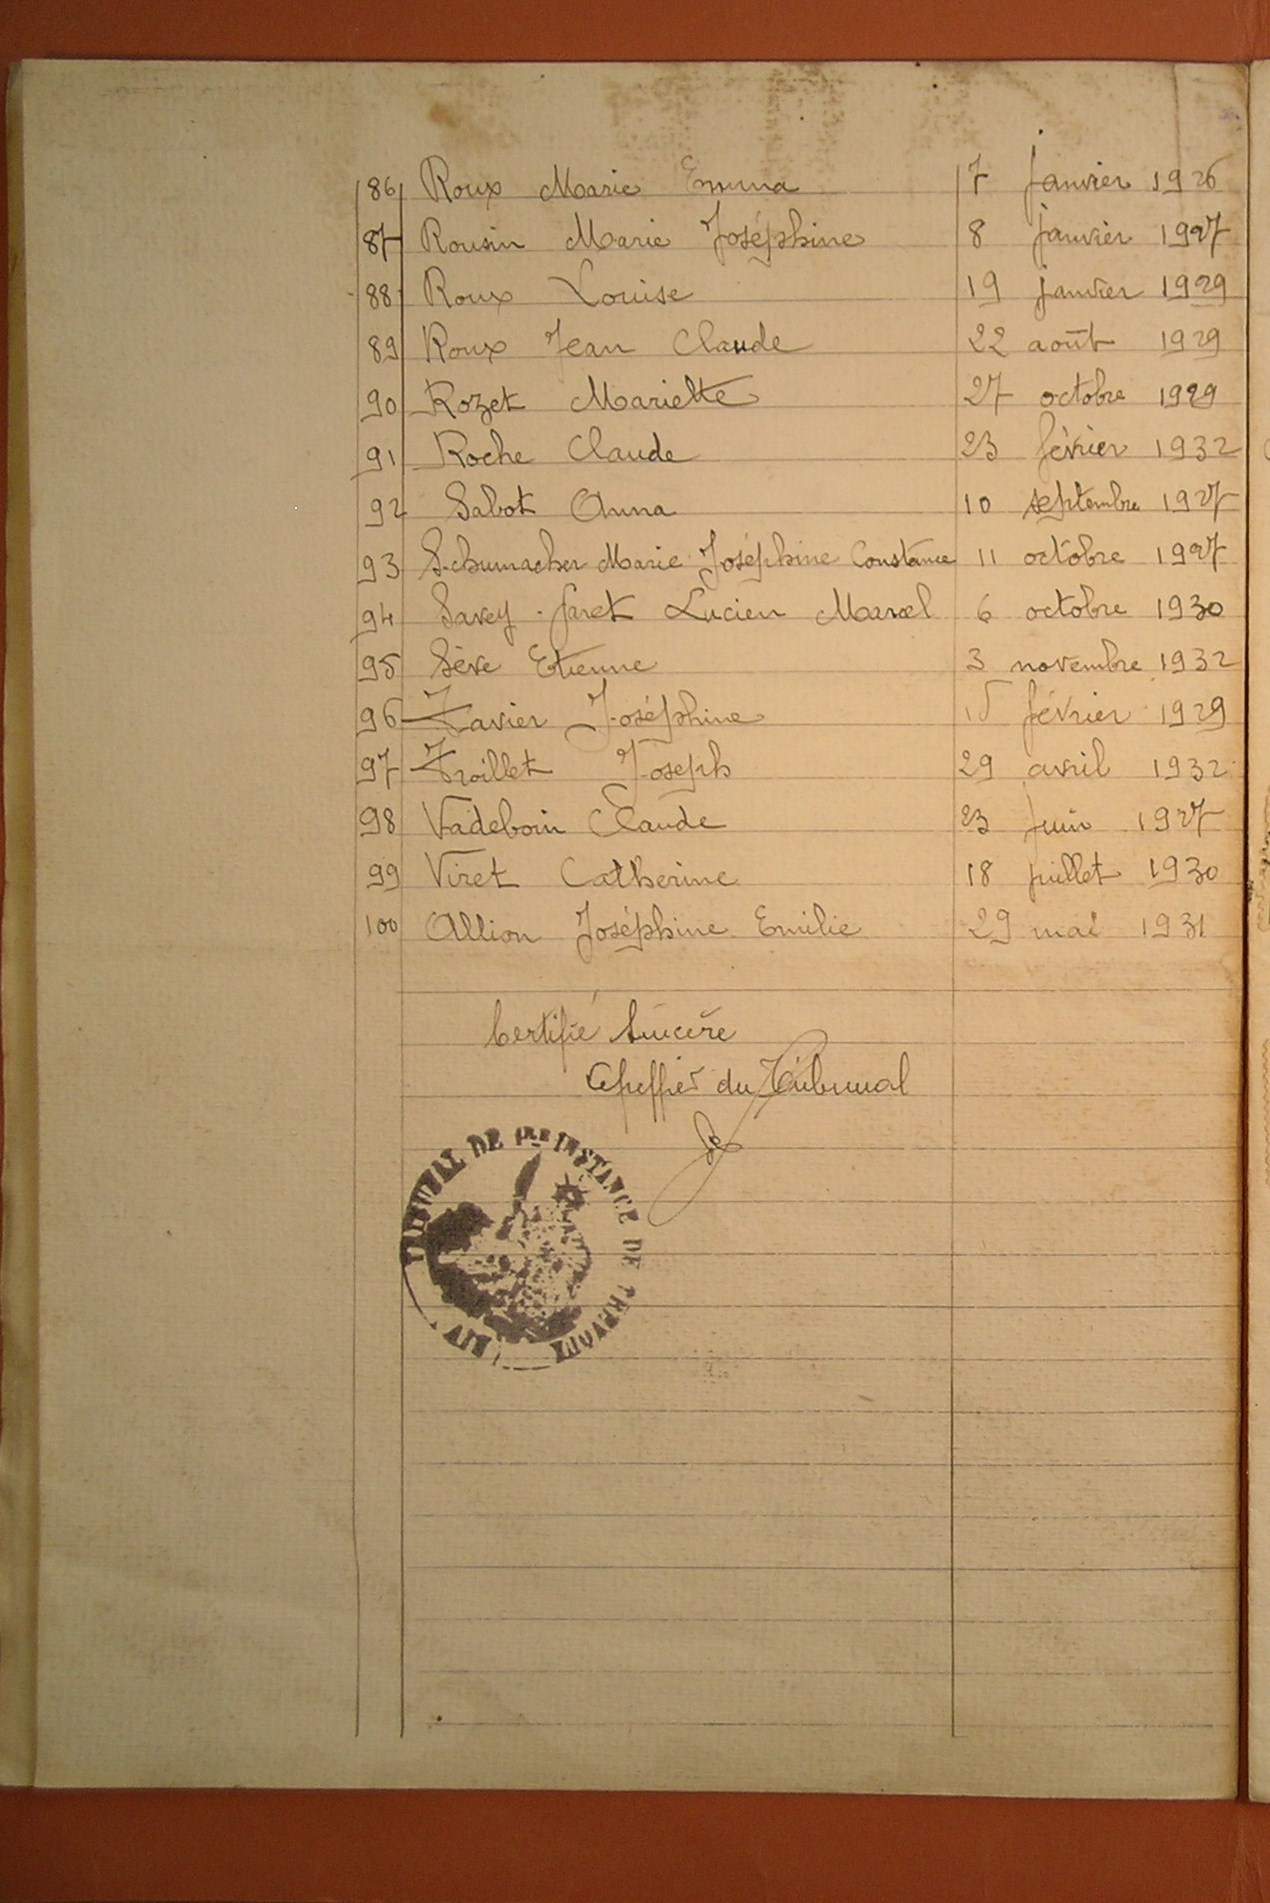 86 Roux Marie Emma 7 janvier 1926
87 Rousin Marie Joséphine 8 janvier 1927
88 Roux Louise 19 janvier 1929
89 Roux Jean Claude 22 août 1929
90 Rozet Mariette 27 octobre 1929
91 Roche Claude 23 février 1932
92 Sabot Anna 10 septembre 1927
93 Schumacher Marie Joséphine Constance 11 octobre 1927
94 Savey-Jaret Lucien Marcel 6 octobre 1930
95 Sève Etienne 3 novembre 1932
96 Xavier Joséphine 15 février 1929
97 Troillet Joseph 29 avril 1932
98 Vadeboin Claude 23 juin 1927
99 Viret Catherine 18 juillet 1930
100 Allion Joséphine Emilie 29 mai 1931
Certifié Sincère
Greffier du Tribunal
TRIBUNAL DE 1RE INSTANCE DE TREVOUX
AIN